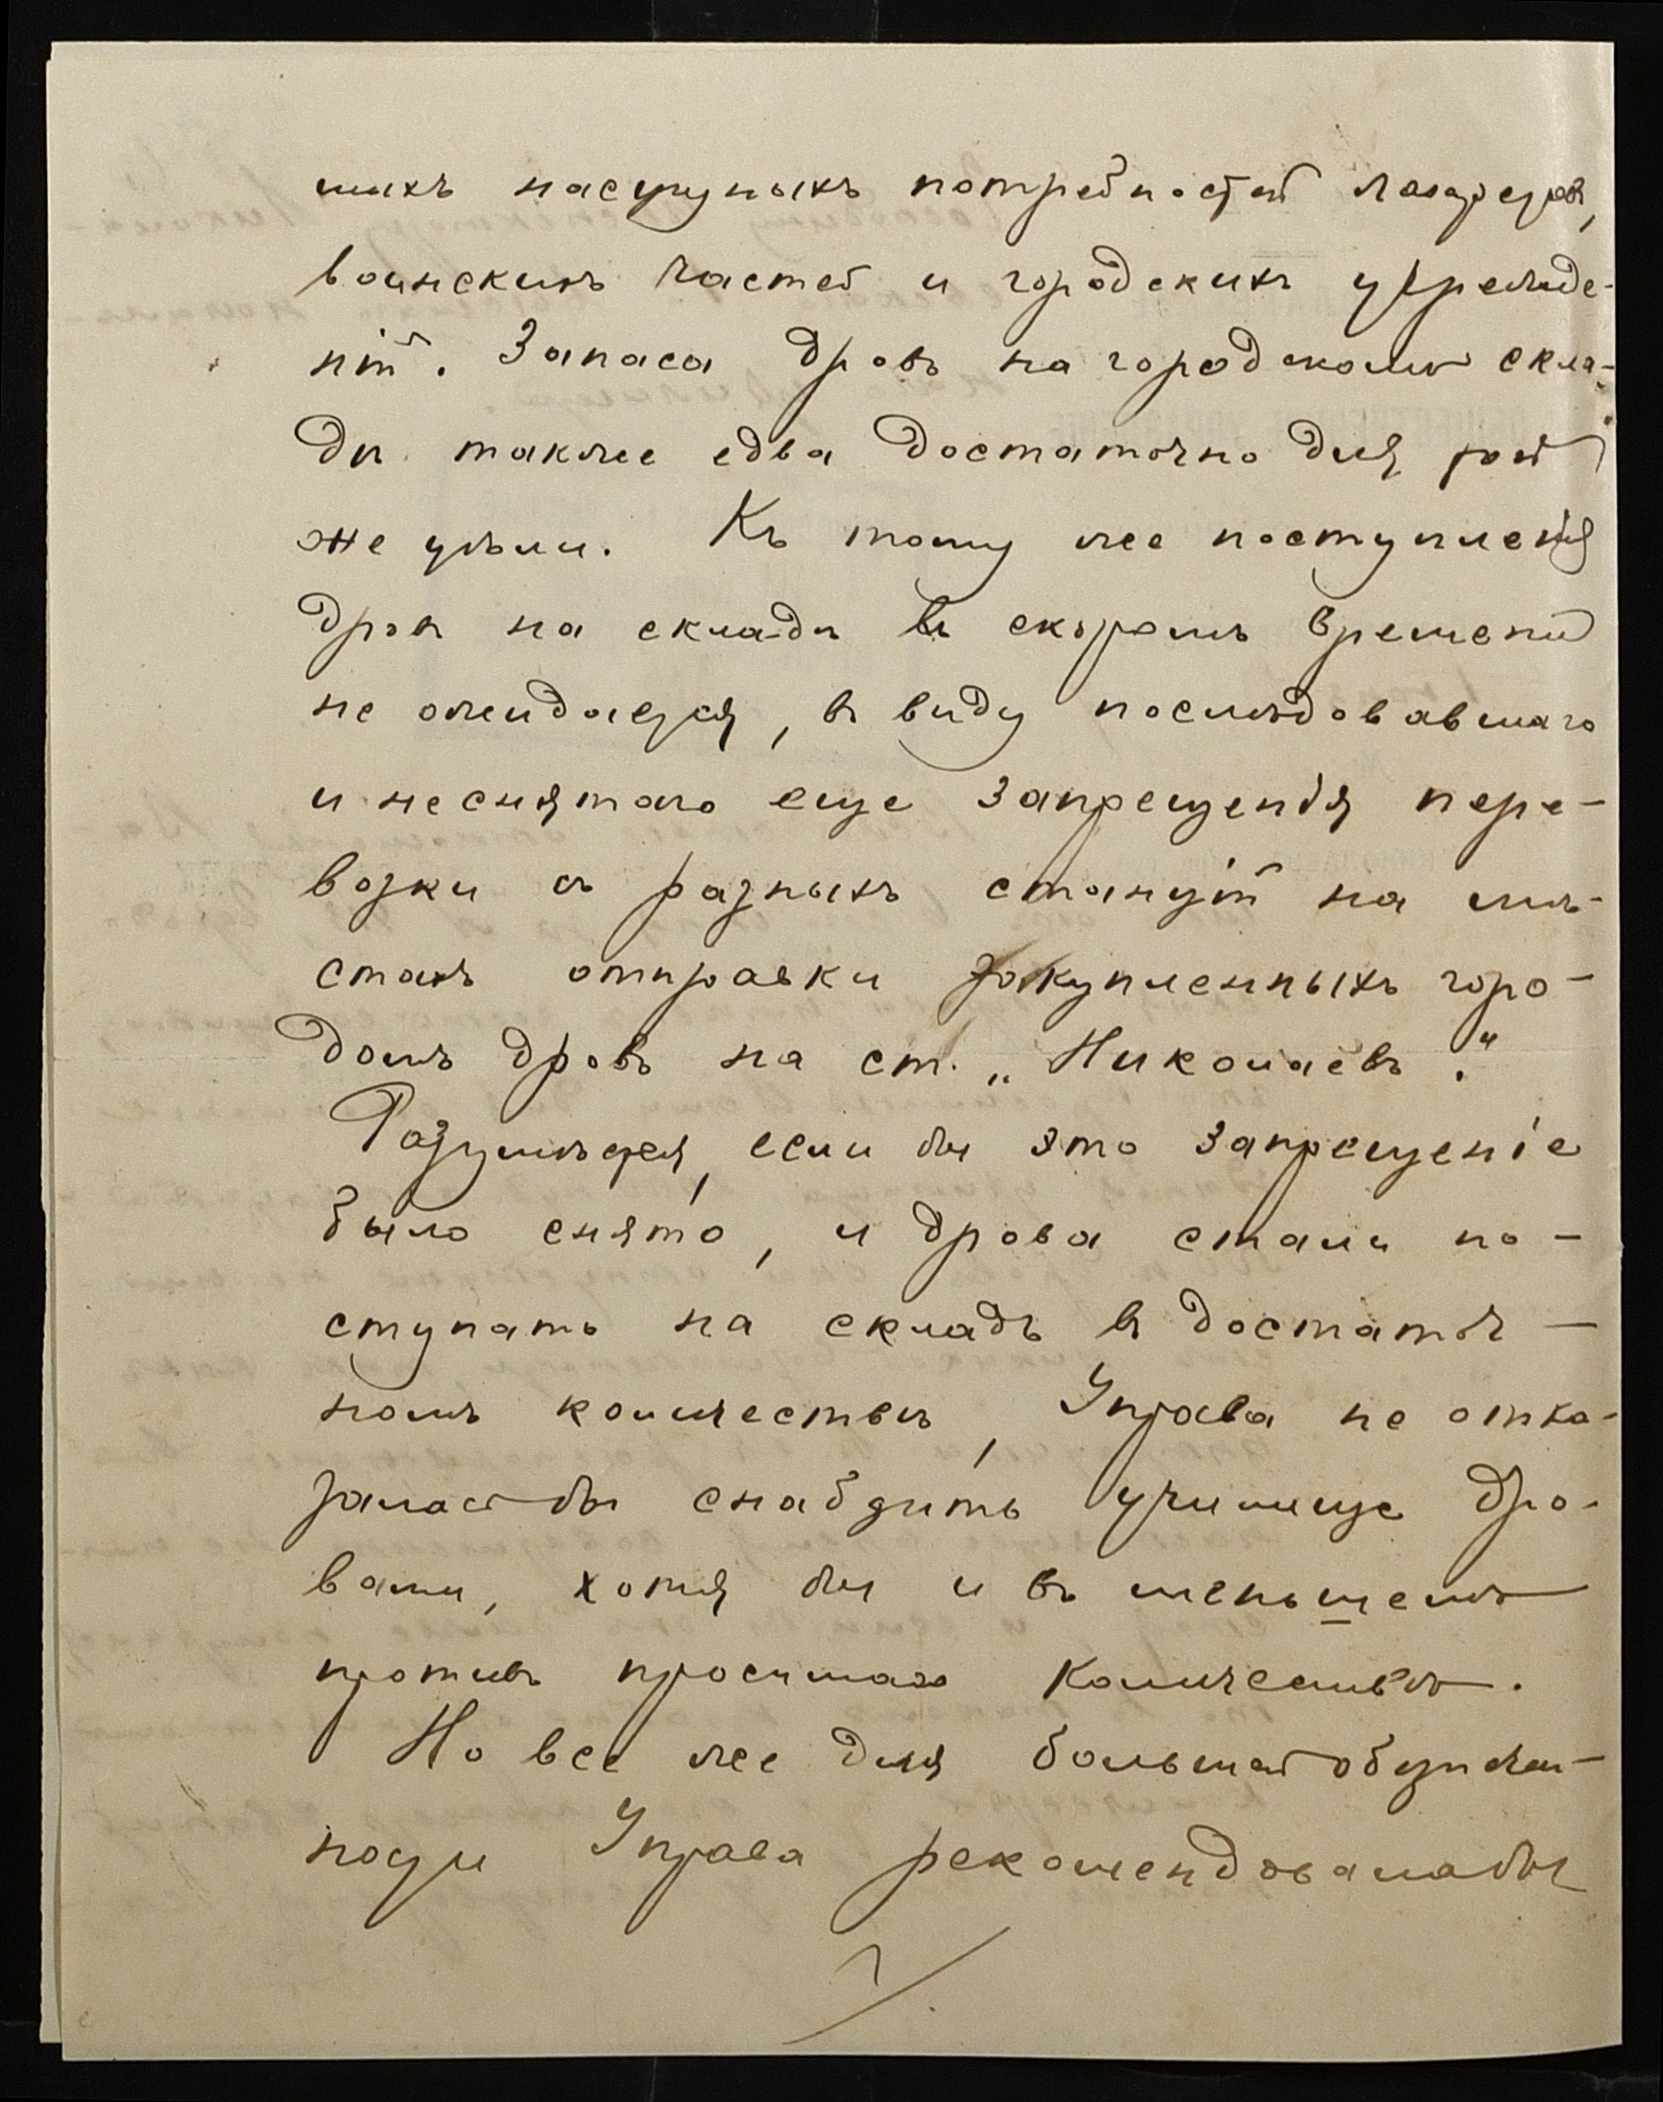 шихъ насущныхъ потребностей лазаретовъ,
воинскихъ частей и городскихъ учрежде-
ній. Запаса дровъ на городскомъ скла-
дѣ также едва достаточно для той
же цѣли. Къ тому же поступленія
дровъ на складъ въ скоромъ времени
не ожидается, въ виду послѣдовавшаго
и неснятаго еще запрещенія пере-
возки съ разныхъ станцій на мѣ-
стахъ отправки закупленныхъ горо-
домъ дровъ на ст. „Николаевъ“.
Разумѣется, если бы это запрещеніе
было снято, и дрова стали по-
ступать на складъ въ достаточ-
номъ количествѣ, Управа не отка-
залась бы снабдить училище дро-
вами, хотя бы и въ меньшемъ
противъ просимаго количествѣ.
Но все же для большей
Управа рекомендовала бы